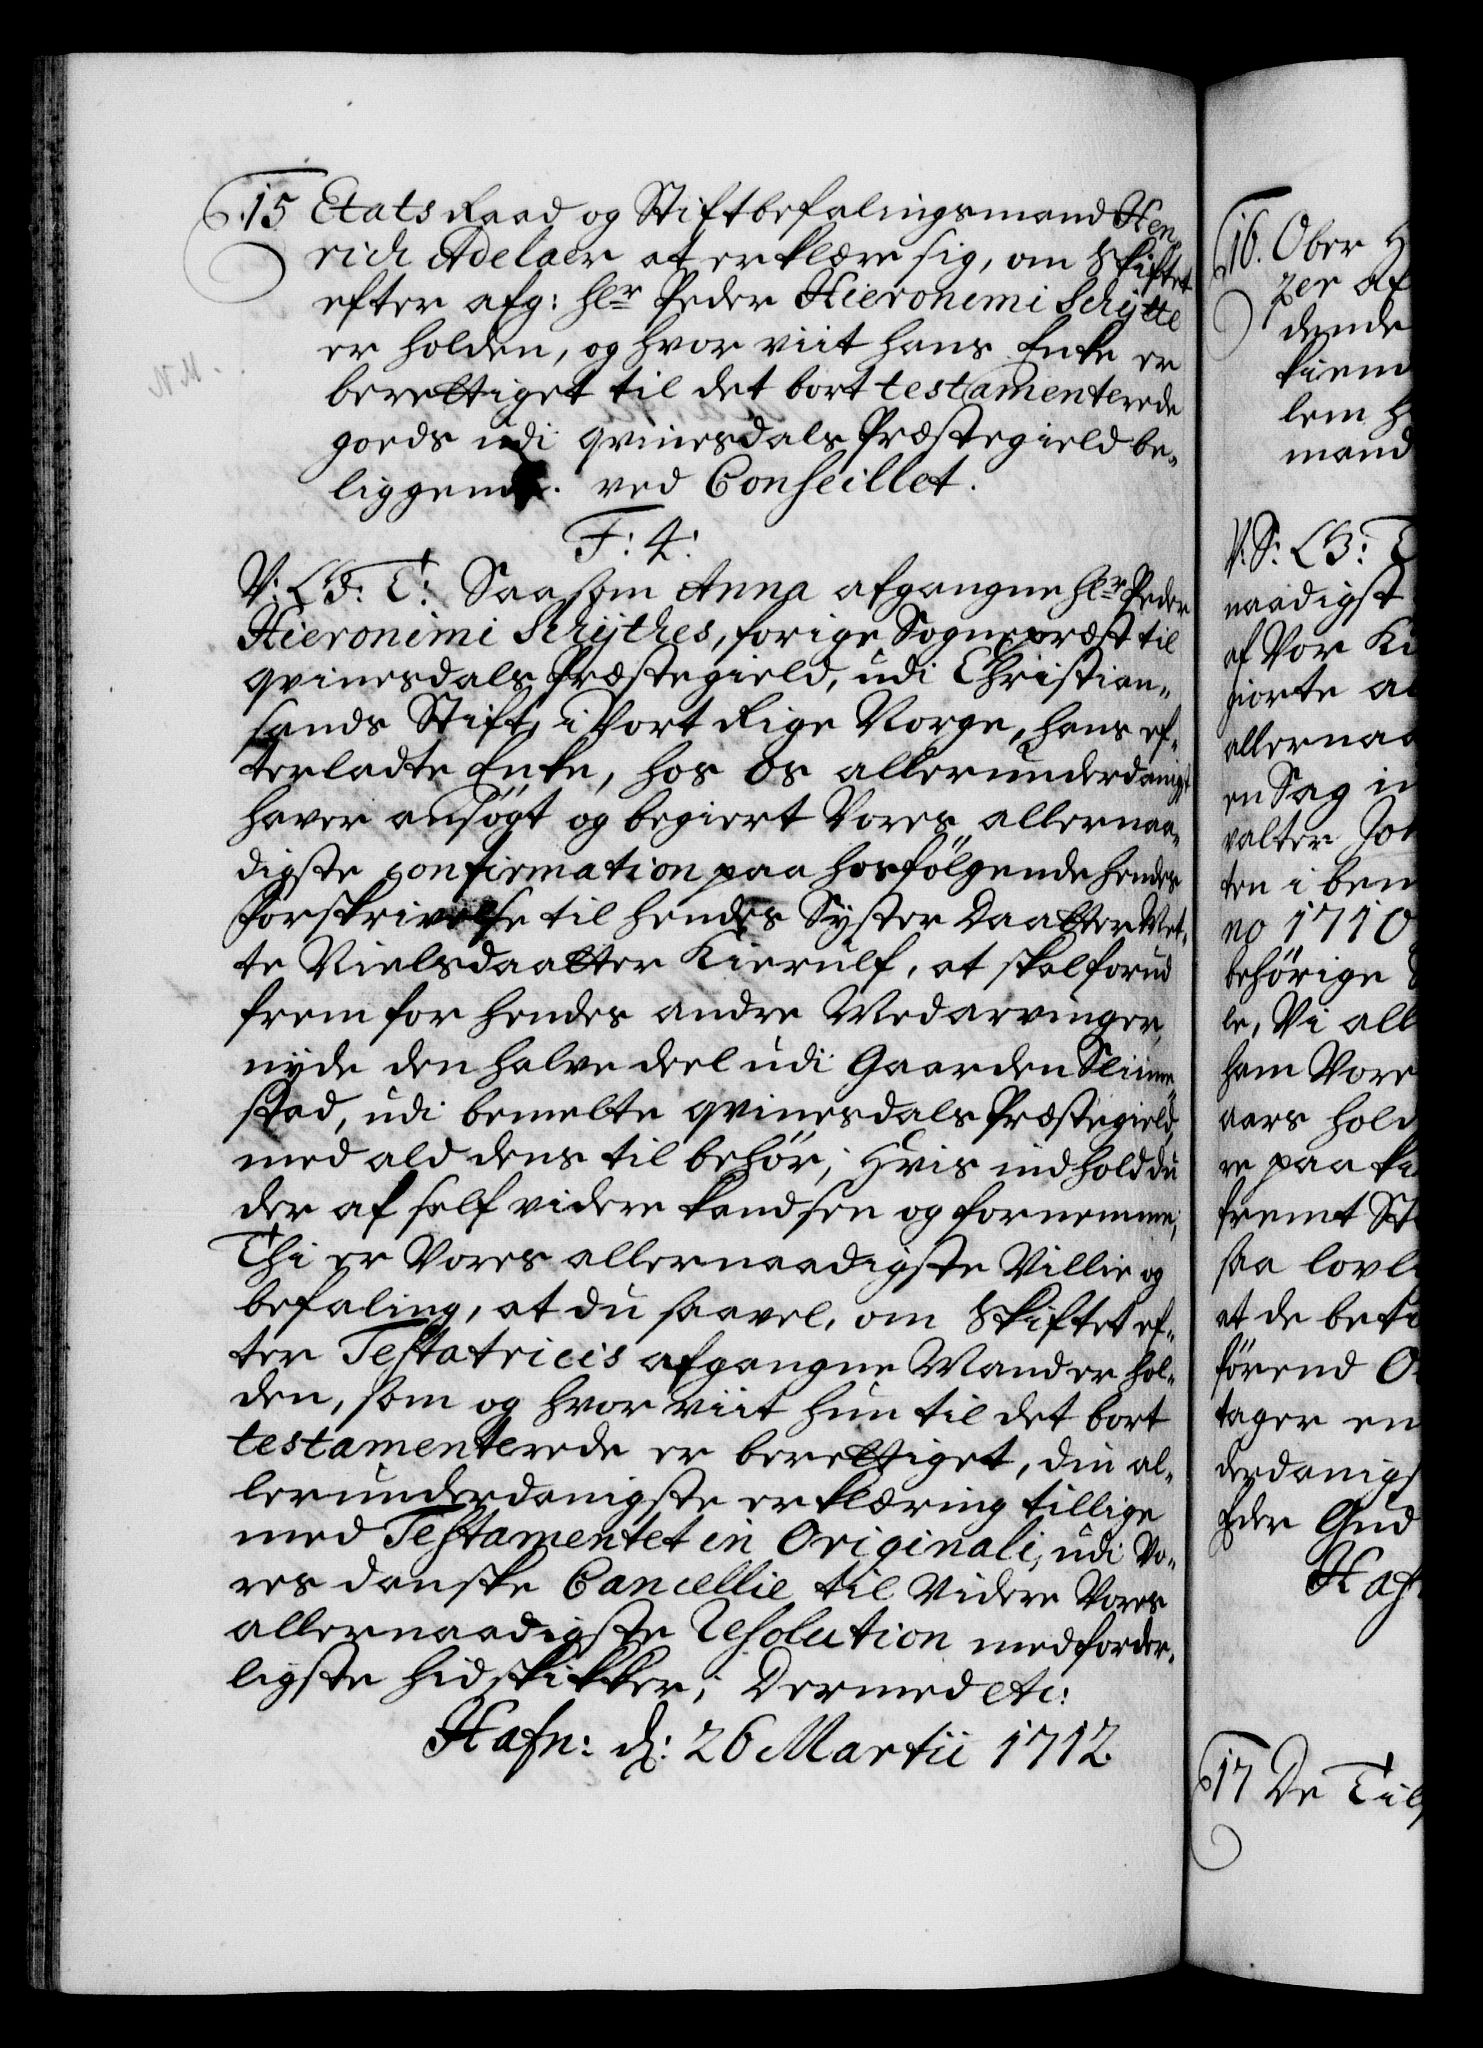 15 Etats Raad og Stiftbefalingsmand Hen„
rich Adelaer at erklære sig, om Skiftet
efter afg: hlr Peder Hieronimi Schytte
er holden, og hvor viit hans Enke er
berettiget til det bort testamenterede
goeds udi qvinesdals Præstegield be„
liggende. ved Conseillet.
F: 4:
V: G: T: Saasom Anna afgangne hlr Peder
Hieronimi Schijthes, forige Sognepræst til
qvinesdals Præstegield, udi Christian„
sands Stift, i Vort Rige Norge, hans ef„
terladte Enke, hos os allerunderdanigst
haver ansøgt og begiert Vores allernaa„
digste confirmation paa hosfølgende hendes
forskrivelse til hendes Syster Daatter Met„
te Nielsdaatter Kierulf, at skal forud
frem for hendes andre Medarvinger,
nÿde den halve deel udi Gaarden Slimme
stad, udi bemelte qvinesdals Præstegield,
med ald dens til behør; Hvis indhold du
der af self videre kand see og fornemme,
Thi er Vores allernaadigste Villie og
befaling, at du saavel, om Skiftet ef„
ter Testatricis afgangne Mand er hol„
den, som og hvor viit hun til det bort
testamenterede er berettiget, din al„
lerunderdanigste erklæring tillige
med Testamentet in Originali, udi Vo„
res danske Cancellie til Videre Vores
allernaadigste Resolution med forder„
ligste hidskikker; Dermed etc:
Hafn: d: 26 Martii 1712.
16. Ober H
zer af
dende
kiem
lem H
mand
V: S: G: T
naadigst
af Vor Ki
giorte a
allernaa
en Sag in
valter Joh
ten i bem
no 1710
behörige
le, Vi all
ham Vore
aars hold
re paa k
fremt St
saa lovl
at de beti
förend O
tager en
derdanigs
Eder Gud
Haf
17 De Til